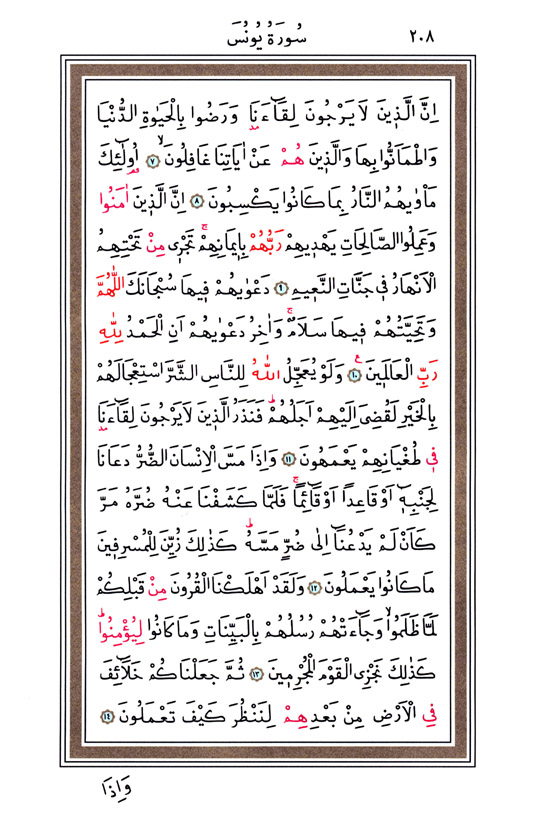 سُورَةُ يُونُسَ ٢٠٨
اِنَّ الَّذ۪ينَ لَا يَرْجُونَ لِقَٓاءَنَا وَرَضُوا بِالْحَيٰوةِ الدُّنْيَا
وَاطْمَاَنُّوا بِهَا وَالَّذ۪ينَ هُمْ عَنْ اٰيَاتِنَا غَافِلُونَۙ ﴿٧﴾ اُو۬لٰٓئِكَ
مَأْوٰيهُمُ النَّارُ بِمَا كَانُوا يَكْسِبُونَ ﴿٨﴾ اِنَّ الَّذ۪ينَ اٰمَنُوا
وَعَمِلُوا الصَّالِحَاتِ يَهْد۪يهِمْ رَبُّهُمْ بِا۪يمَانِهِمْۚ تَجْر۪ي مِنْ تَحْتِهِمُ
الْاَنْهَارُ ف۪ي جَنَّاتِ النَّع۪يمِ ﴿٩﴾ دَعْوٰيهُمْ ف۪يهَا سُبْحَانَكَ اللّٰهُمَّ
وَتَحِيَّتُهُمْ ف۪يهَا سَلَامٌۚ وَاٰخِرُ دَعْوٰيهُمْ اَنِ الْحَمْدُ لِلّٰهِ
رَبِّ الْعَالَم۪ينَ۟ ﴿١٠﴾ وَلَوْ يُعَجِّلُ اللّٰهُ لِلنَّاسِ الشَّرَّ اسْتِعْجَالَهُمْ
بِالْخَيْرِ لَقُضِيَ اِلَيْهِمْ اَجَلُهُمْۜ فَنَذَرُ الَّذ۪ينَ لَا يَرْجُونَ لِقَٓاءَنَا
ف۪ي طُغْيَانِهِمْ يَعْمَهُونَ ﴿١١﴾ وَاِذَا مَسَّ الْاِنْسَانَ الضُّرُّ دَعَانَا
لِجَنْبِه۪ٓ اَوْ قَاعِدًا اَوْ قَٓائِمًاۚ فَلَمَّا كَشَفْنَا عَنْهُ ضُرَّهُ مَرَّ
كَاَنْ لَمْ يَدْعُنَٓا اِلٰى ضُرٍّ مَسَّهُۜ كَذٰلِكَ زُيِّنَ لِلْمُسْرِف۪ينَ
مَا كَانُوا يَعْمَلُونَ ﴿١٢﴾ وَلَقَدْ اَهْلَكْنَا الْقُرُونَ مِنْ قَبْلِكُمْ
لَمَّا ظَلَمُواۙ وَجَٓاءَتْهُمْ رُسُلُهُمْ بِالْبَيِّنَاتِ وَمَا كَانُوا لِيُؤْمِنُواۜ
كَذٰلِكَ نَجْزِي الْقَوْمَ الْمُجْرِم۪ينَ ﴿١٣﴾ ثُمَّ جَعَلْنَاكُمْ خَلَٓائِفَ
فِي الْاَرْضِ مِنْ بَعْدِهِمْ لِنَنْظُرَ كَيْفَ تَعْمَلُونَ ﴿١٤﴾
وَاِذَا